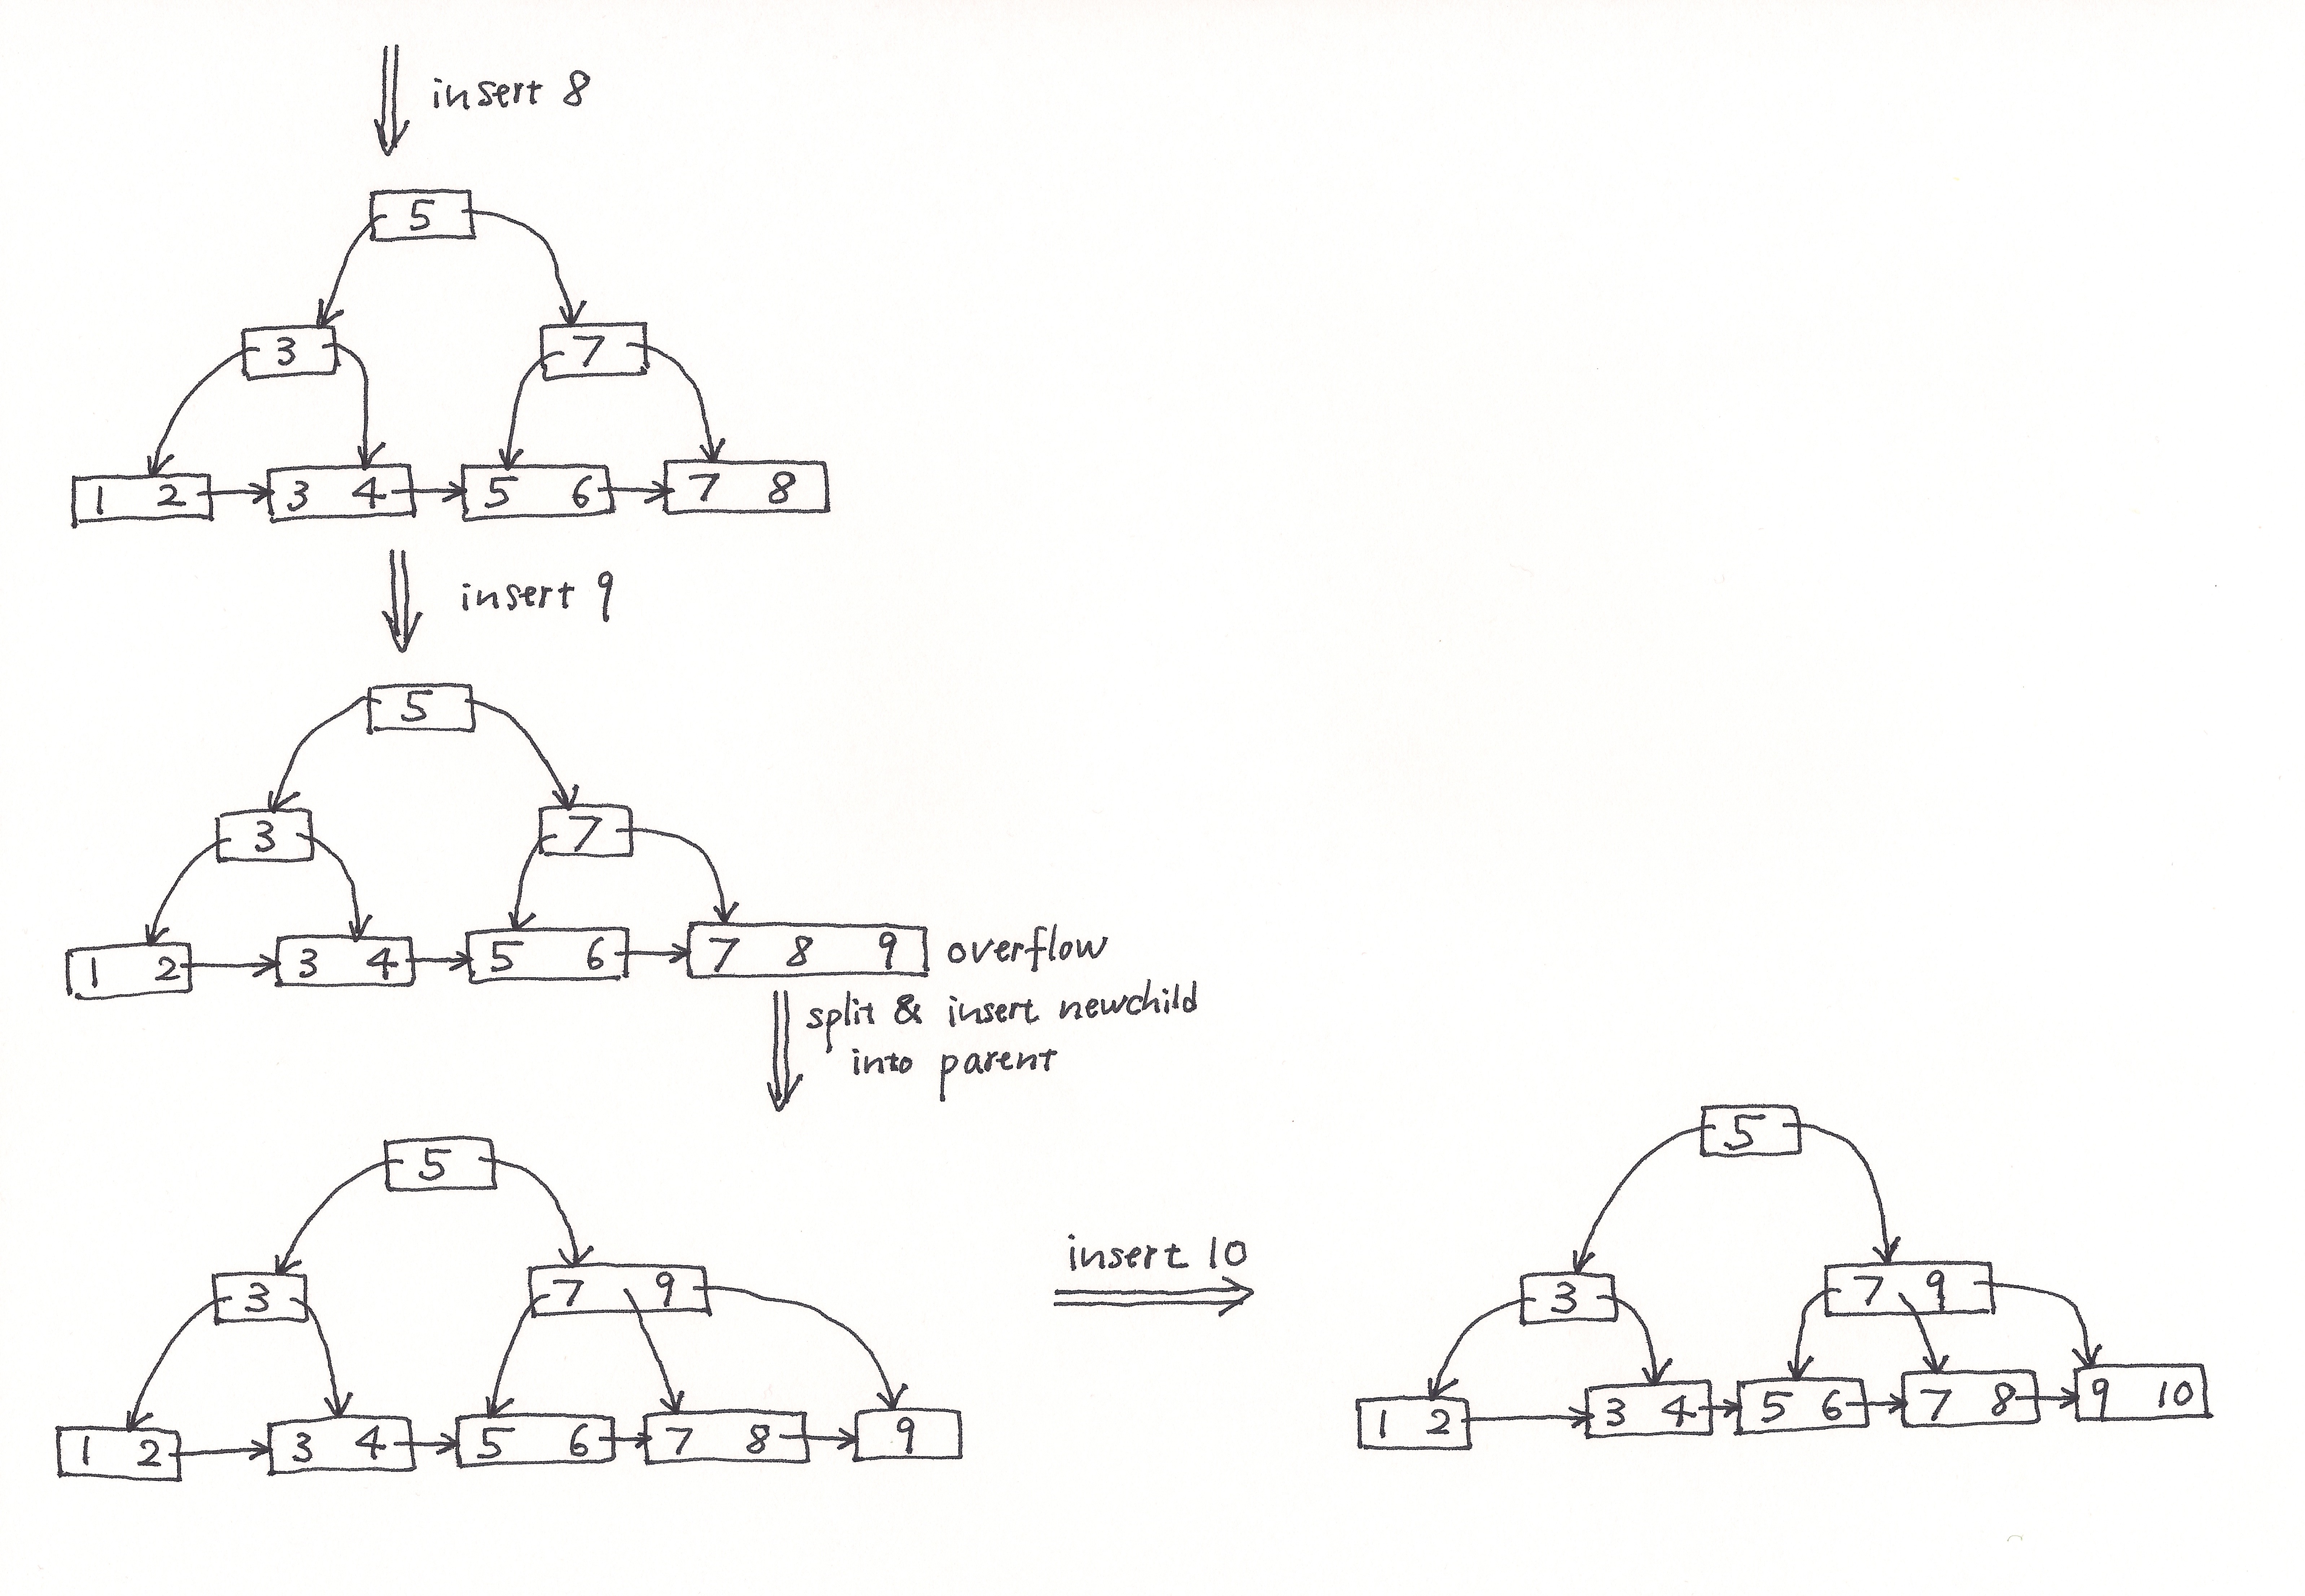 insert 8
5
3 7
1 2 3 4 5 6 7 8
insert 9
5
3 7
1 2 3 4 5 6 7 8 9 overflow
split & insert newchild
into parent
5
3 7 9
1 2 3 4 5 6 7 8 9
insert 10
5
3 7 9
1 2 3 4 5 6 7 8 9 10